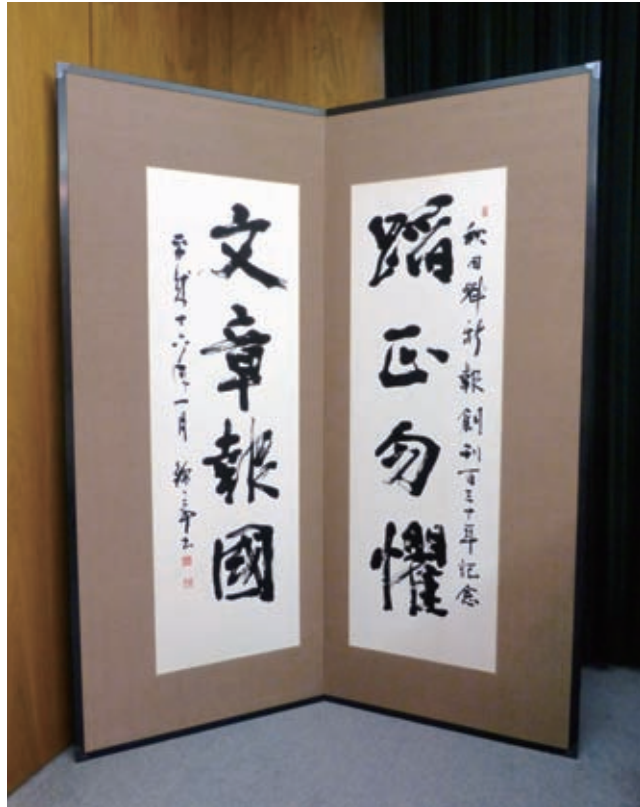 秋田魁新報創刊百三十年記念
蹈正勿懼
文章報國
平成十六年一月